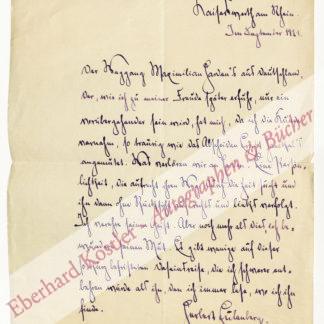 Kaiserswerth am Rhein.
Im September 1921.
Der Weggang Maximilian Harden's aus Deutschland,
der, wie ich zu meiner Freude später erfuhr, nur ein
vorübergehender sein wird, hat mich, da ich die
vernahm, so traurig wie das Abscheiden
angemutet. Was verlören wir an
lichkeit, die aufrecht ihren Weg durch die Zeit sucht und
ihn ohne Rücksicht rechts und links verfolgt.
Ich verehre seinen Geist. Aber noch mehr als dies be-
wundere ich seinen Mut. Es gibt wenige auf dieser
befristeten Daseinsreise, die ich schwerer ent-
behren würde als ihn, den ich immer lese, wo ich ihn
finde.
Herbert Eulenberg.
Eberhard Köstler Autographen & Bücher